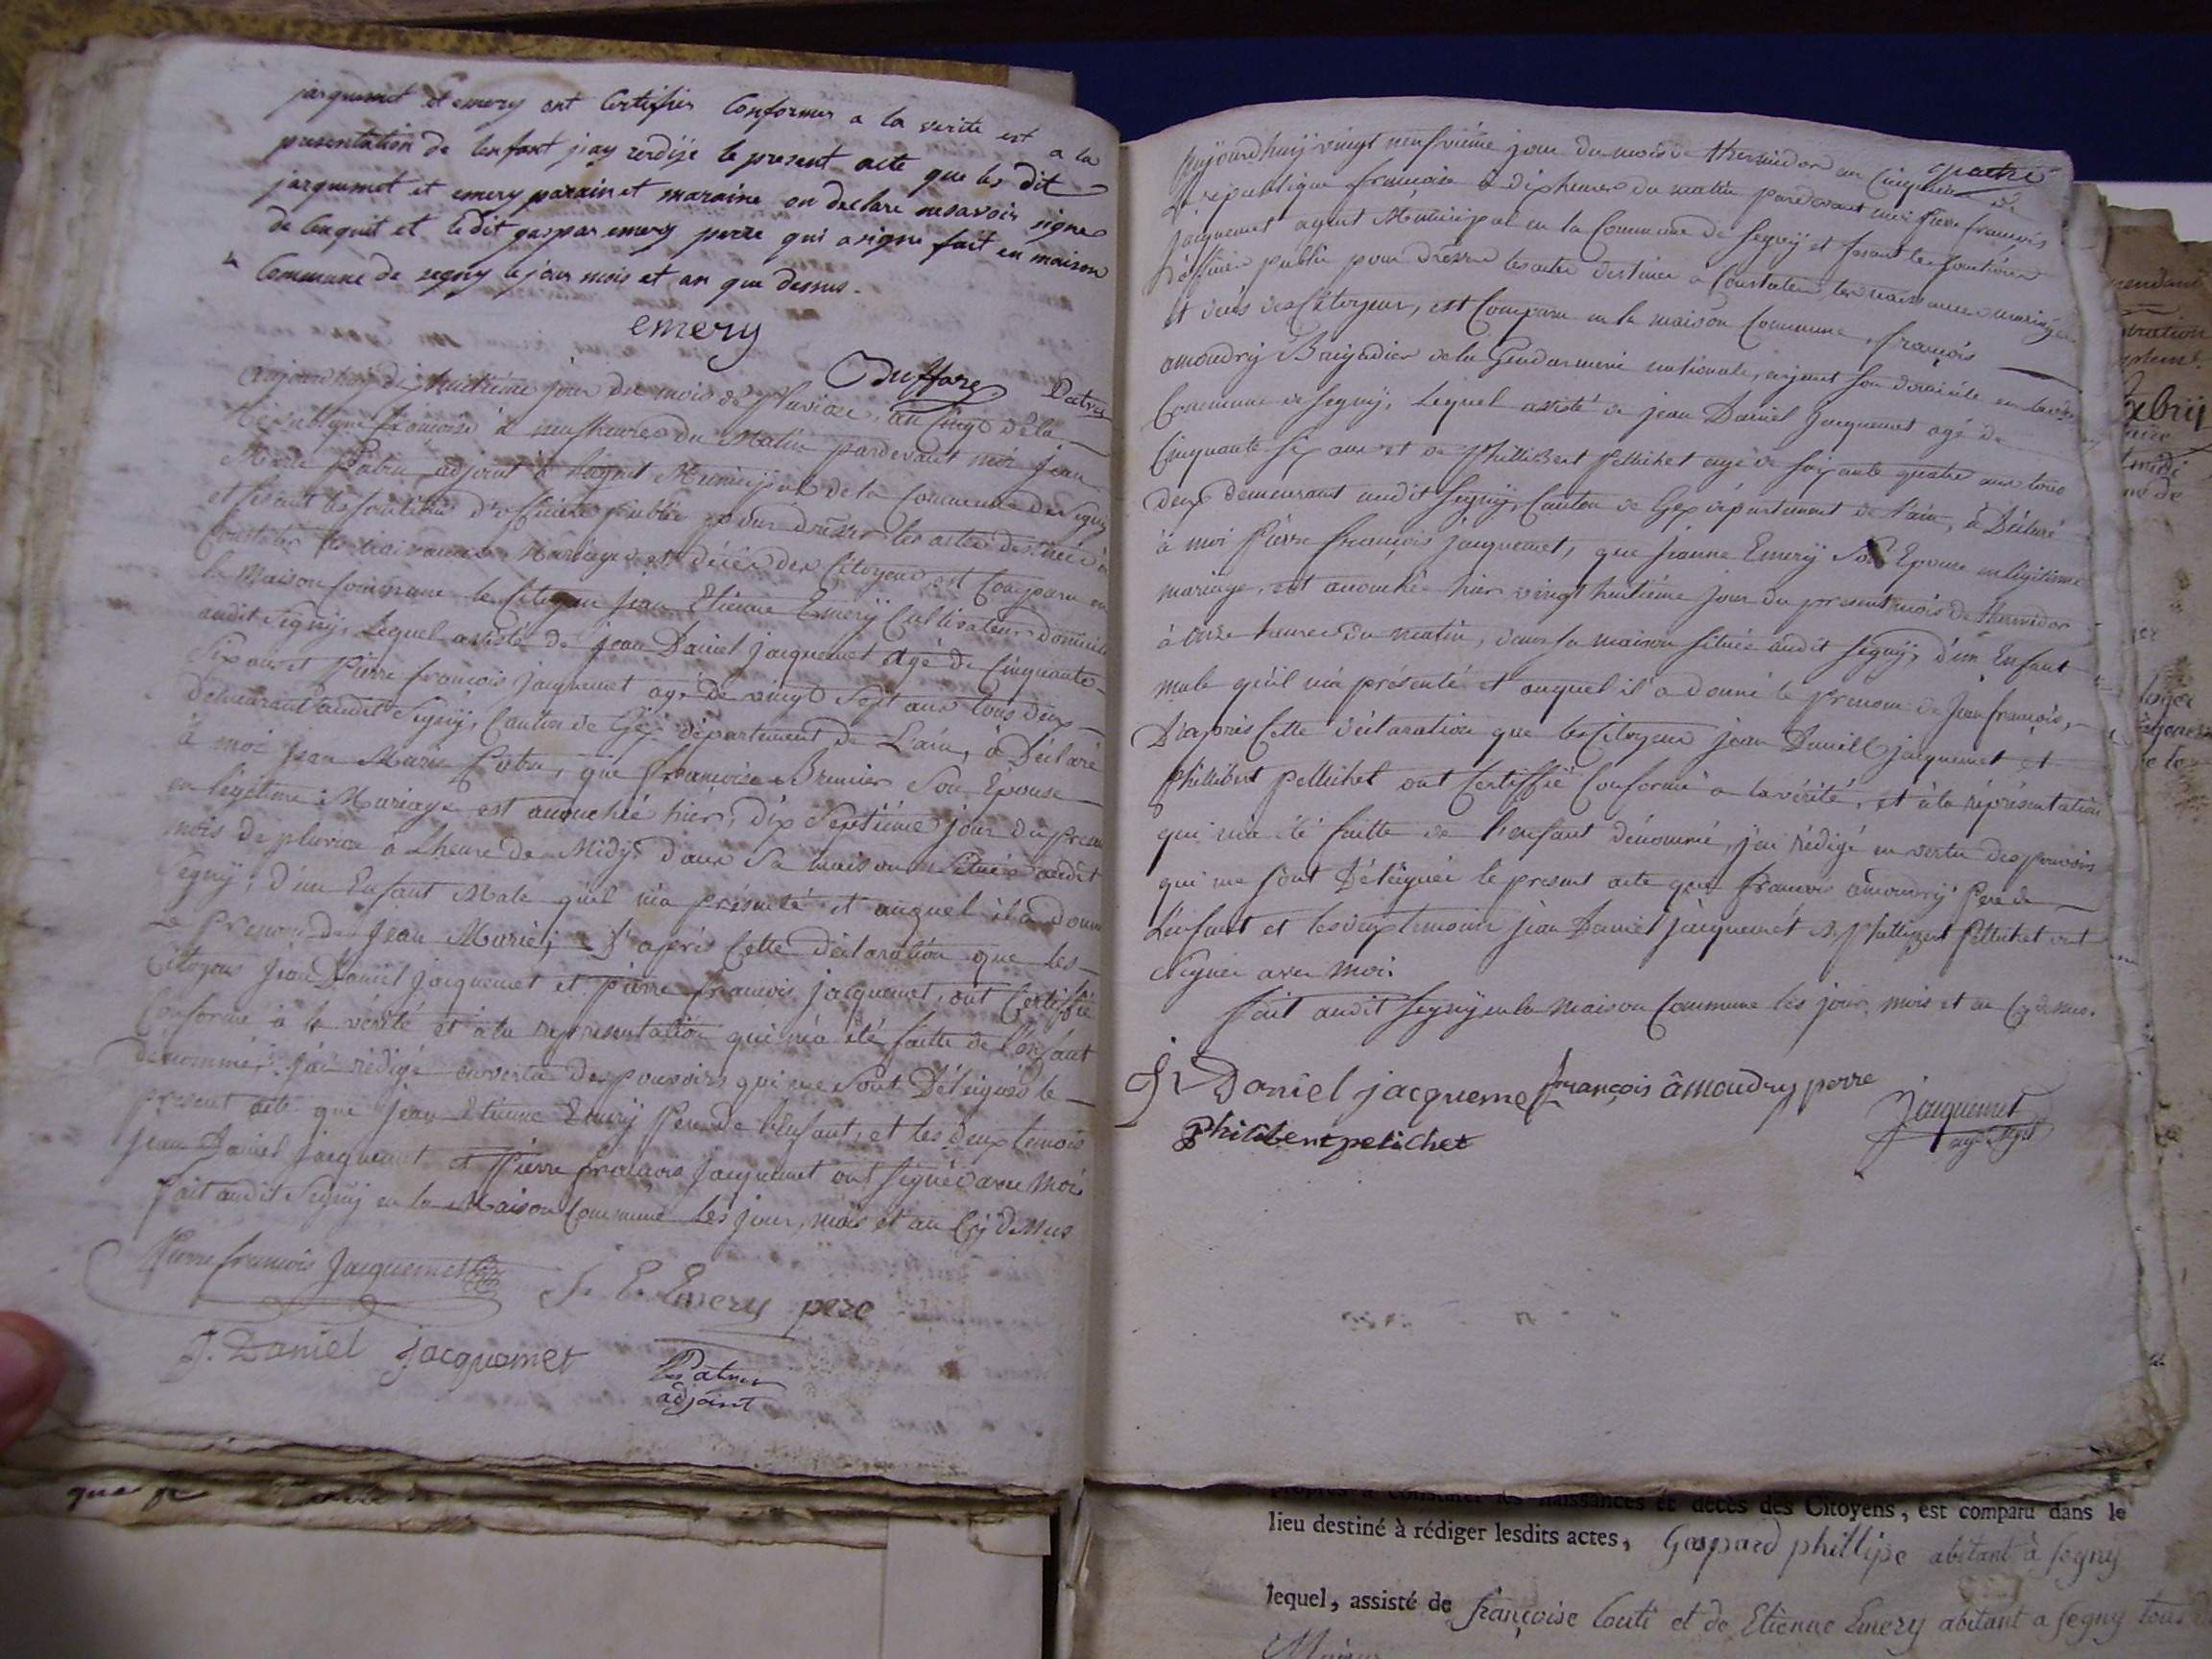 jarquemet et emery ont Certifier Conformer a la verite est a la
presentation de lenfant jiay rerdije le present acte que les dit
jarquemet et emery parain et maraine on declare nesavoir signe
de lenquit et ledit gaspar emery perre qui a signe fait en maison
Commune de segny le jour mois et an que dessus.
emery
Duffare Patru
Aujourdhuy dixhuitième jour du mois de Pluviose, an Cinq de la
République francoise à neuf heures du Matin pardevant moi Jean
Marie Patru adjoint à l'agent Municipal de la Commune de Segny
et fesant les fontions d'officier public pour dresser les actes destinés à
Constater les naissances Mariages et décès des Citoyens est Comparu en
la Maison Commune le Citoyen Jean Etienne Emerÿ Cultivateur domicilié
audit Segnÿ, Lequel assisté de Jean Daniel Jacquemet agé de Cinquante
Six ans et Pierre francois Jacquemet agé de vingt Sept ans tous deux
demeurant audit Segnÿ, Canton de Gex département de L'ain, à Déclaré
à moi Jean Marie Patru, que francoise Brunier Son Epouse
en légitime Mariage est acouchée hier, dix Septième jour du present
mois de pluviose à Lheure de Midy, dans Sa maison Située audit
Segnÿ, d'un Enfant Male qu'il m'a présenté et auquel il a donné
Le Prenom de Jean Marie; D'après Cette déclaration que les
Citoyens Jean Daniel Jacquemet et Pierre francois Jacquemet, ont Certiffié
Conforme à la vérité et à la représentation qui m'a été faitte de l'enfant
dénommé, j'ai rédigé en vertu des pouvoirs qui me Sont Délégués le
présent acte que Jean Etienne Emerÿ Pere de L'enfant, et les deux temois
Jean Daniel Jacquemet et Pierre francois Jacquemet ont Signés avec Moi
fait audit Segnÿ en la Maison Commune Les jour, mois et an Cÿ Dessus
Pierre francois Jacquemet
J. E. Emery pere
J. Daniel Jacquemet
Patru
adjoint
quatre
Aujourdhuy vingt neufvième jour du mois de thermidor an Cinquième de
la république francoise à dix heures du matin pardevant moi Pierre francois
Jacquemet agent Municipal en la Commune de Segnÿ et fesant les fontions
d'officier public pour dresser les actes destinés à Constater les naissances mariages
et décès des Citoyens, est Comparu en la maison Commune, francois
amoudrÿ Brigadier de la Gendarmerie nationale, aÿant son domicile en la
Commune de Segnÿ, Lequel assisté de jean Daniel Jacquemet agé de
Cinquante Six ans et de Phillibert Pellichet agé de soixante quatre ans tous
deux demeurant audit Segnÿ, Canton de Gex département de l'ain, à Déclaré
à moi Pierre francois Jacquemet, que Jeanne Emerÿ Son Epouse en légitime
mariage, est acouchée hier vingt huitième jour du present mois de Thermidor
à onze heures du matin, dans sa maison située audit segnÿ, d'un Enfant
male qu'il m'a présenté et auquel il a donné le prenom de Jean francois,
D'après Cette déclaration que les Citoyens jean Daniell jacquemet et
Phillibert Pellichet ont Certiffié Conforme à la vérité, et à la réprésentation
qui m'a été faitte de l'enfant dénommé, j'ai rédigé en vertu des pouvoirs
qui me sont Délégués le present acte que francois amoudrÿ Pere de
L'enfant et les deux temoins jean Daniel jacquemet et Phillibert Pellichet ont
Signés avec Moi.
fait audit Segnÿ en la Maison Commune les jour, mois et an Cÿ dessus.
J. Daniel jacquemet françois âmoudry perre
Jacquemet
philibent pelichet
agt
que
propres à constater les naissances et décès des Citoyens, est comparu dans le
lieu destiné à rédiger lesdits actes, Gaspard phillipe abitant à segny
lequel, assisté de françoise Couti et de Etienne Emery abitant a segny tous